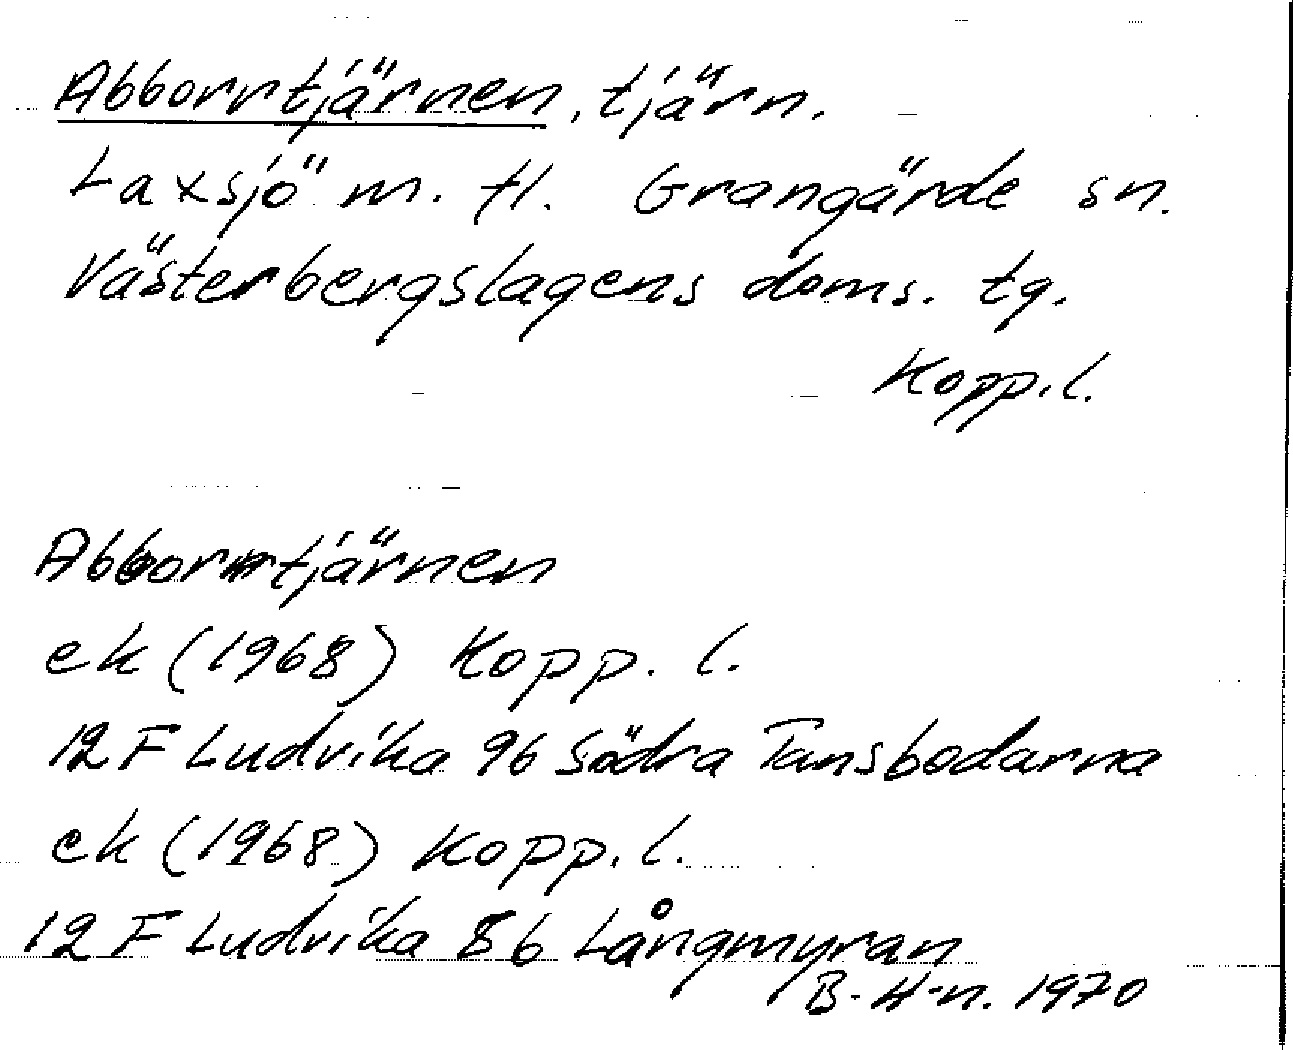 Abborrtjärnen, tjärn.
Laxsjö m. fl. Grangärde sn.
Västerbergslagens doms. tg.
Kopp.l.
Abborrtjärnen
ek (1968) Kopp. l.
12 F Ludvika 9b Södra Tansbodarna
ek (1968) Kopp. l.
12 F Ludvika 8b Långmyran
B. H-n. 1970